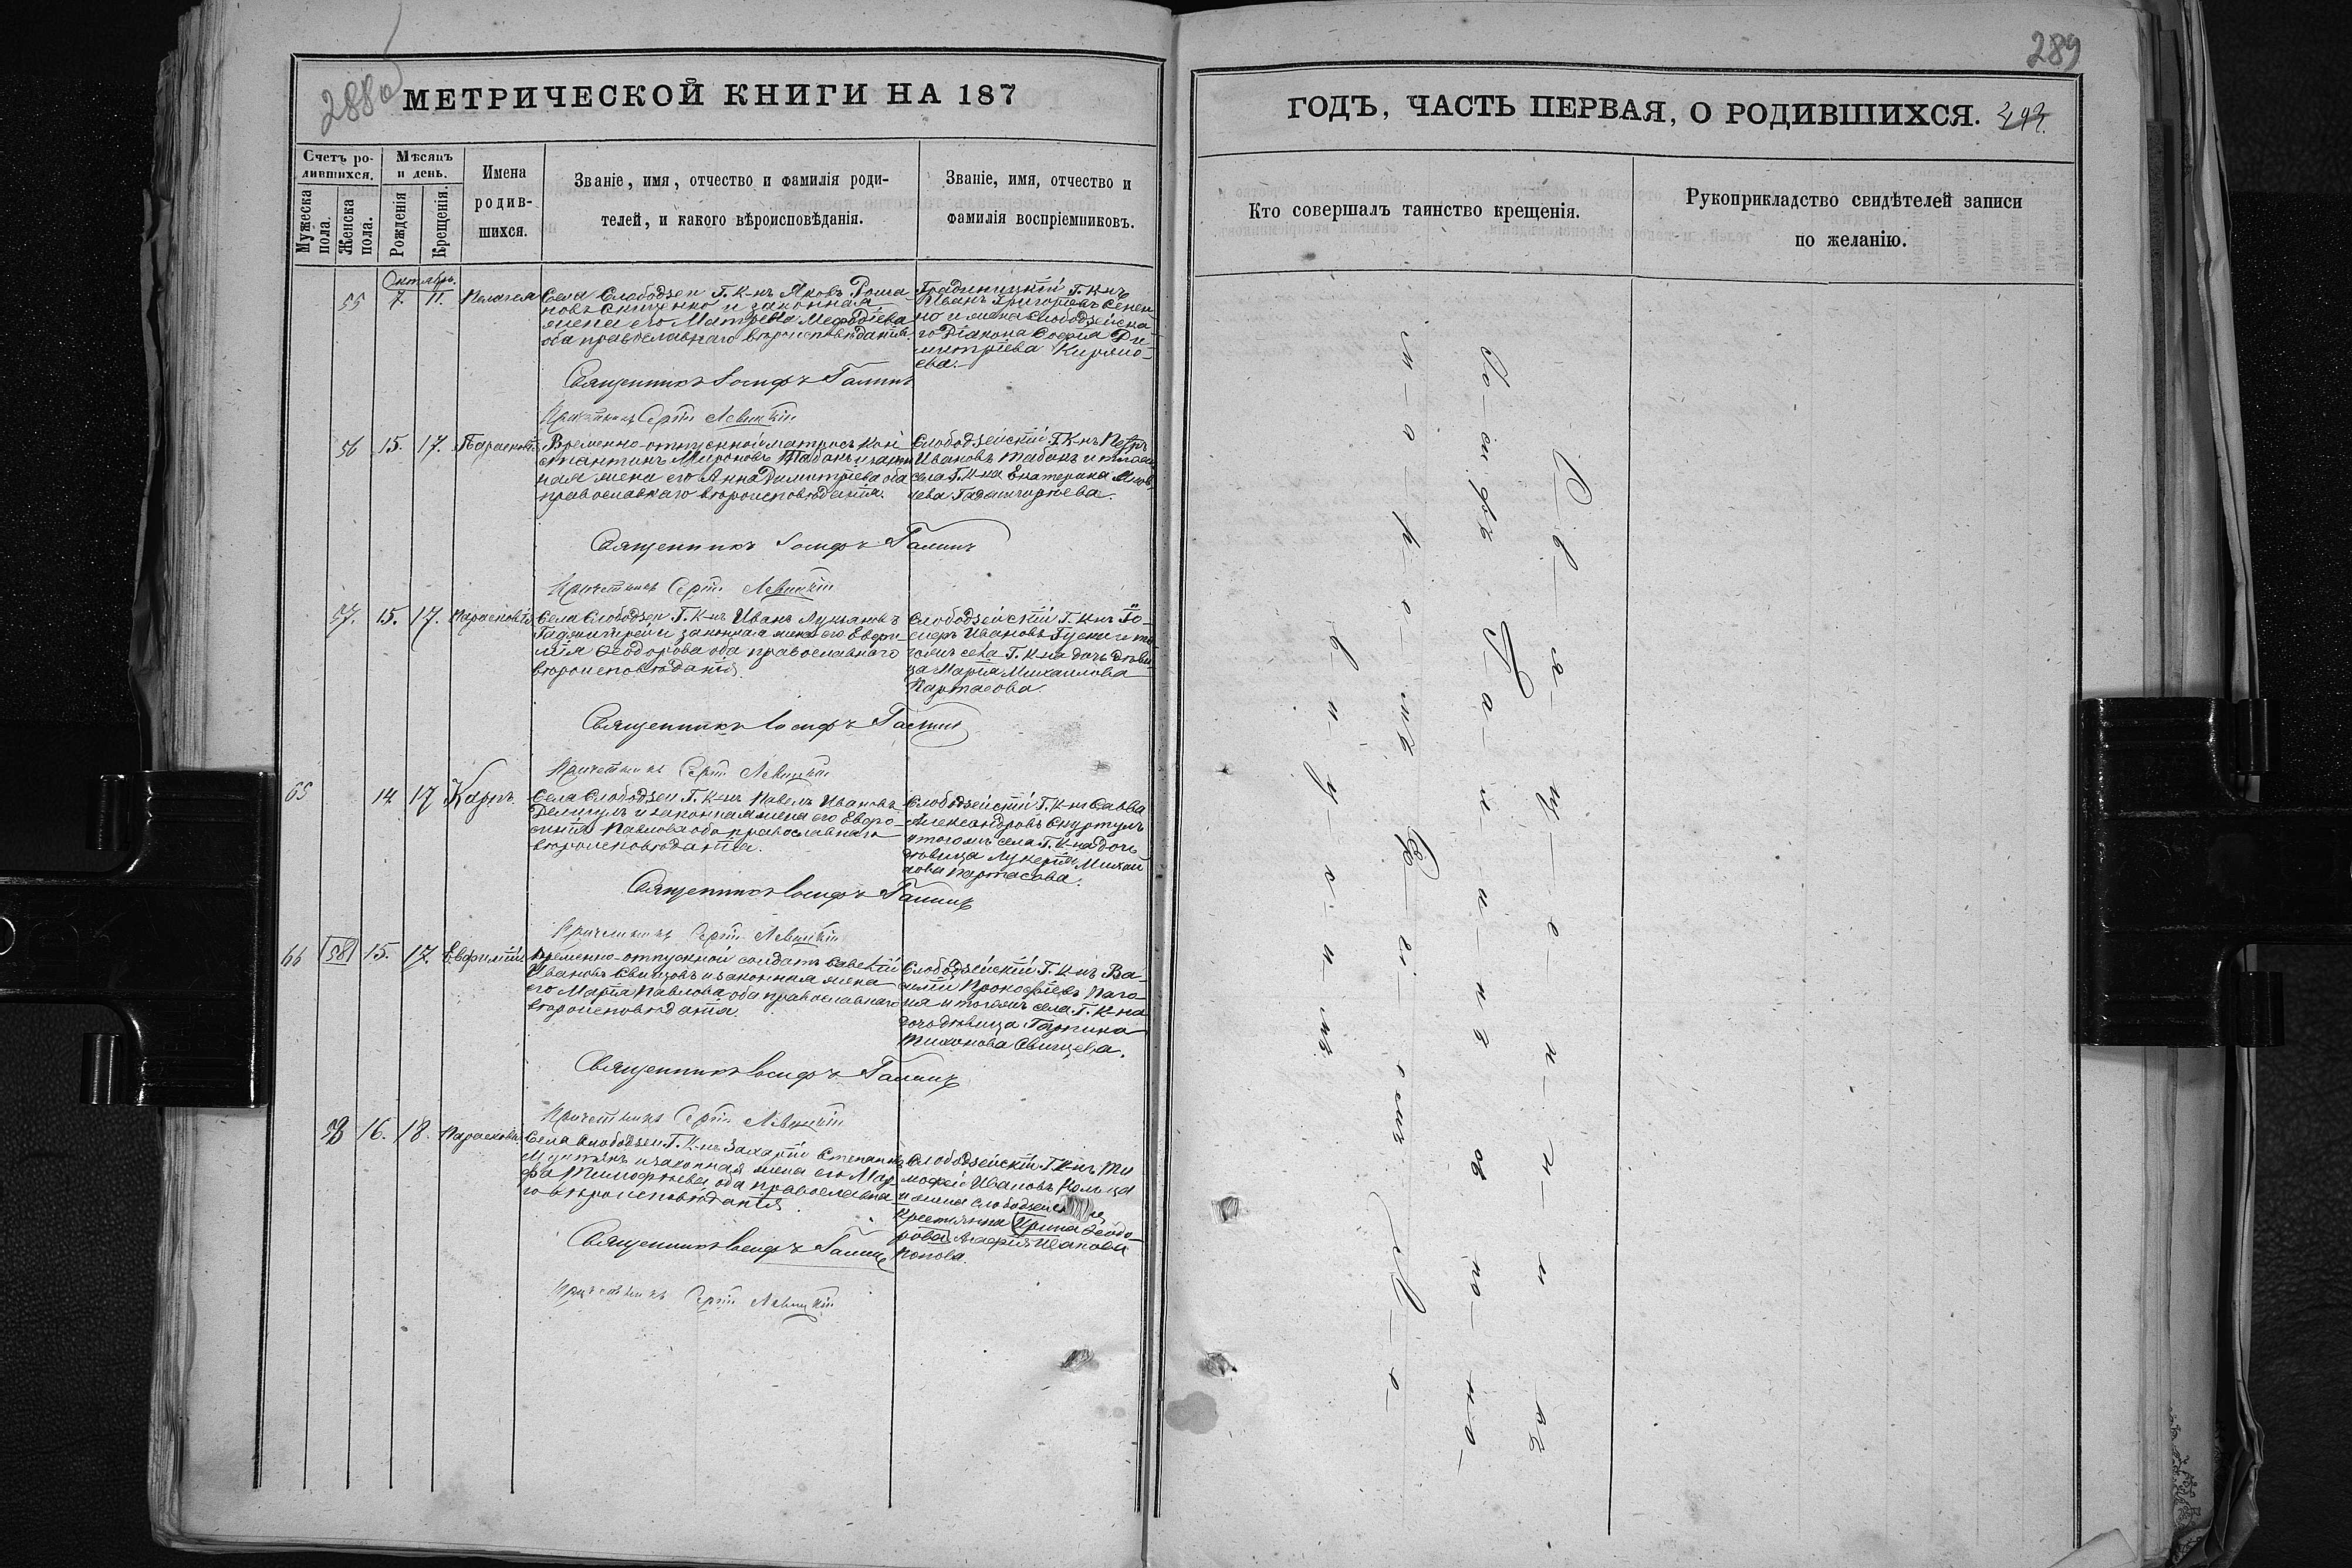 288об
МЕТРИЧЕСКОЙ КНИГИ НА 187
Счетъ ро-
дившихся.
Мужеска
пола.
Женска
пола.
Мѣсяцъ
и день.
Рожденія
Крещенія.
Имена
родив-
шихся.
Званіе, имя, отчество и фамилія роди-
телей, и какого вѣроисповѣданія.
Званіе, имя, отчество и
фамилія воспріемниковъ.
Октябрь.
55 7. 11. Пелагея
Села Слободзеи Г. К-нъ Яковъ Рома-
новъ и законная
жена его Матрена Мефодіева
оба православнаго вѣроисповѣданія.
Градиницкій Г. К-нъ
Иванъ Григорьевъ Сенен-
ко и жена Слободзейска-
го Діакона Софія Ди-
митріева
ева.
Священникъ Іосифъ Галинъ
Причетникъ Сергій Левицкій
56 15. 17. Параскевія
Временно-отпускной матросъ Кон-
стантинъ Мироновъ Табанъ и закон
ная жена его Анна Димитріева оба
православнаго вѣроисповѣданія.
Слободзейскій Г. К-нъ Петръ
Ивановъ Табанъ и
села Г. К-на Екатерина
Священникъ Іосифъ Галинъ
Причетникъ Сергій Левицкій
57. 15. 17. Параскевія
Села Слободзеи Г. К-нъ Иванъ Лукьяновъ
и законная жена его Евфи-
мія Феодорова оба православнаго
вѣроисповѣданія.
Слободзейскій Г. К-нъ
Ивановъ и то
гожъ села Г. К-на дочь дѣви-
ца Марія Михаилова
Картасова.
Священникъ Іосифъ Галинъ
Причетникъ Сергій Левицкій
65 14 17 Карпъ.
Села Слободзеи Г. К-нъ Павелъ Ивановъ
и законная жена его Евфро-
синія Павлова оба православнаго
вѣроисповѣданія.
Слободзейскій Г. К-нъ Савва
Александровъ Скуртулъ
и тогожъ села Г. К-на дочь
дѣвица Лукерія Михаи
лова Картасова.
Священникъ Іосифъ Галинъ
Причетникъ Сергій Левицкій
66 58 15. 17. Евфимій
Временно-отпускной солдатъ Савелій
Ивановъ и законная жена
его Марія Павлова, оба православнаго
вѣроисповѣданія.
Слободзейскій Г. К-нъ Ва-
силій Прокофіевъ
и тогожъ села Г. К-на
дочь дѣвица Гарпина
Тихонова
Священникъ Іосифъ Галинъ
Причетникъ Сергій Левицкій
58 16. 18. Параскевія
Села Слободзеи Г. К-нъ Захарій Степановъ
Мунтянъ и законная жена его Мар-
фа Тимофѣева оба православна
го вѣроисповѣданія
Слободзейскій Г. К-нъ Ти
мофей Ивановъ
и жена
Крестьянка Ирина Феодо-
рова Агафія Иванова
Попова.
Священникъ Іосифъ Галинъ
Причетникъ Сергій Левицкій
289
ГОДЪ, ЧАСТЬ ПЕРВАЯ, О РОДИВШИХСЯ.
Кто совершалъ таинство крещенія.
Рукоприкладство свидѣтелей записи
по желанію.
С-в-я-щ-е-н-н-и-къ
Іо-си-фъ Га-ли-нъ съ по-но-
м-а-р-е-мъ Се-р-гі-емъ Ле-
в-и-ц-к-и-мъ.